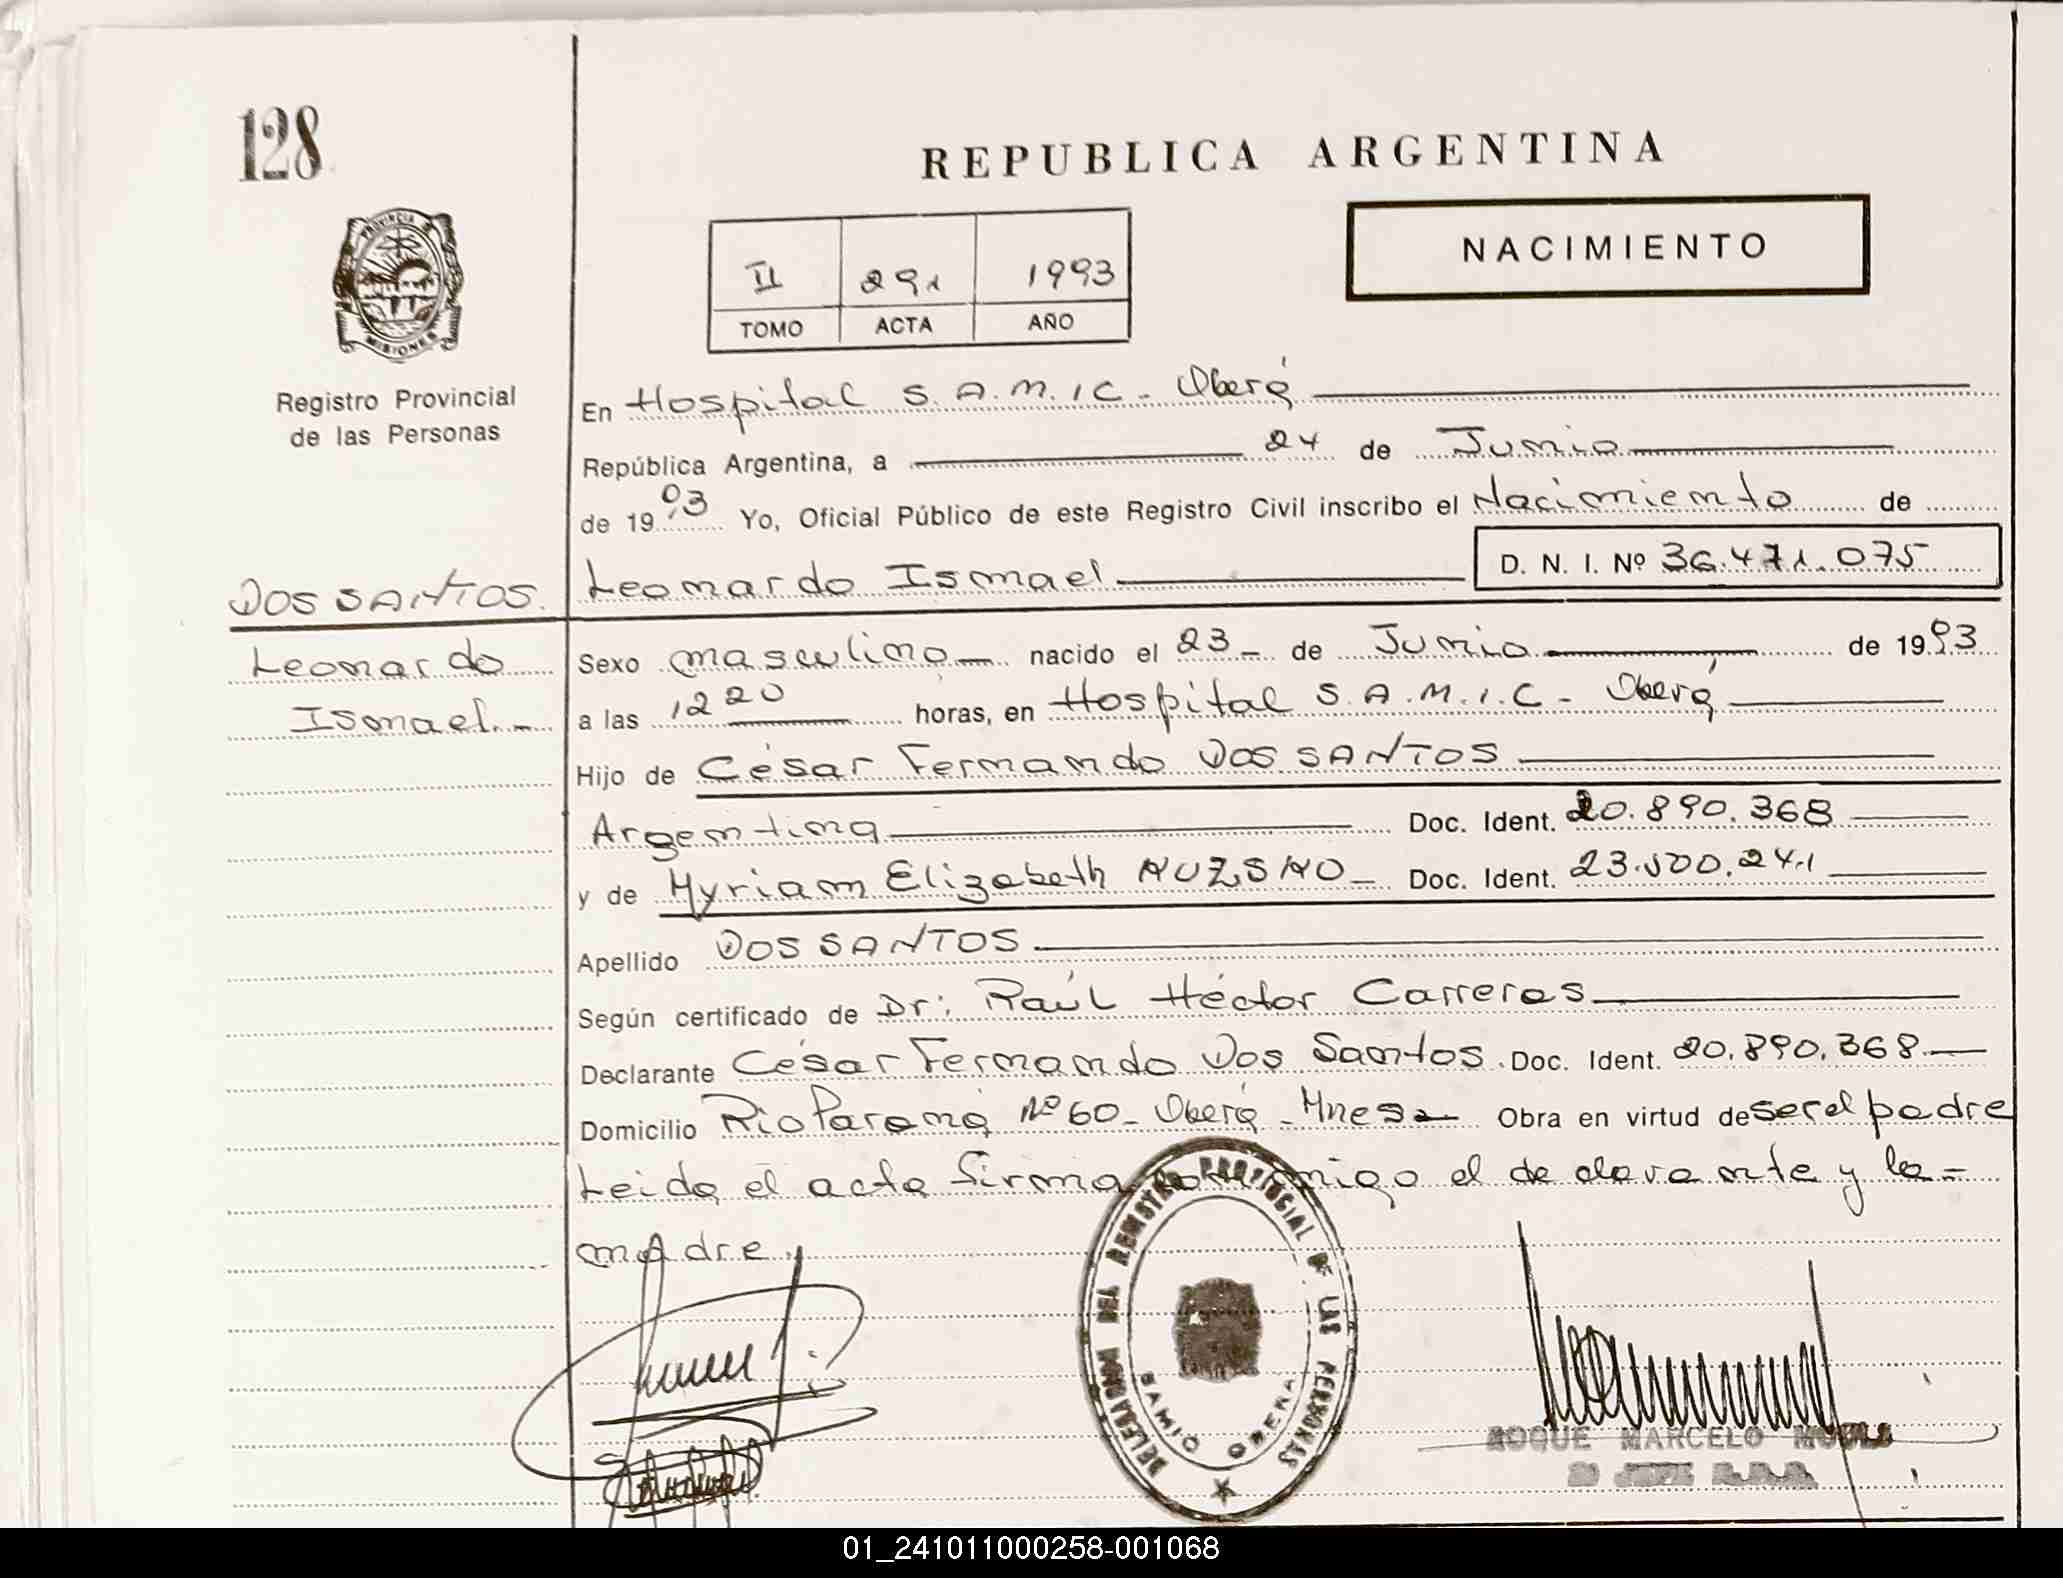 128
REPUBLICA ARGENTINA
PROVINCIA DE
MISIONES
NACIMIENTO
II 291 1993
TOMO ACTA AÑO
Registro Provincial
de las Personas
En Hospital S.A.M.I.C - Oberá
República Argentina, a 24 de Junio
de 1993 Yo, Oficial Público de este Registro Civil inscribo el Nacimiento de
D. N. I. Nº 36.471.075
DOS SANTOS. Leonardo Ismael
Leonardo Sexo masculino nacido el 23 de Junio de 1993
Ismael.- a las 12 20 horas, en Hospital S.A.M.I.C - Oberá
Hijo de César Fernando DOS SANTOS
Argentina Doc. Ident. 20.890.368
y de Myriam Elizabeth Doc. Ident. 23.500.241
Apellido DOS SANTOS
Según certificado de Dr: Raúl Héctor Carreras
Declarante César Fernando Dos Santos. Doc. Ident. 20.890.368
Domicilio Rio Paraná Nº 60 - Oberá - Mnes Obra en virtud de ser el padre
Leida el acta firma conmigo el declarante y la
madre
DELEGACION DEL REGISTRO PROVINCIAL DE LAS PERSONAS
SAMIC OBERA
ROQUE MARCELO
01_241011000258-001068